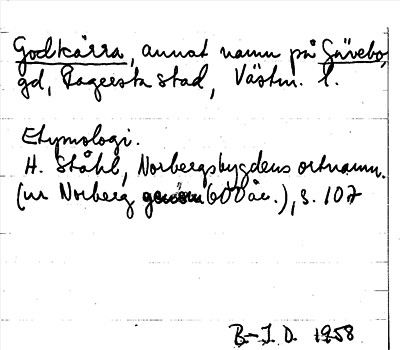 Godkärra, annat namn på Gävebo,
gd, Fagersta stad, Västm. l.
Etymologi.
H. Ståhl, Norbergsbygdens ortnamn.
(ur Norberg genom 600 år.), s. 107
B-I. D. 1958